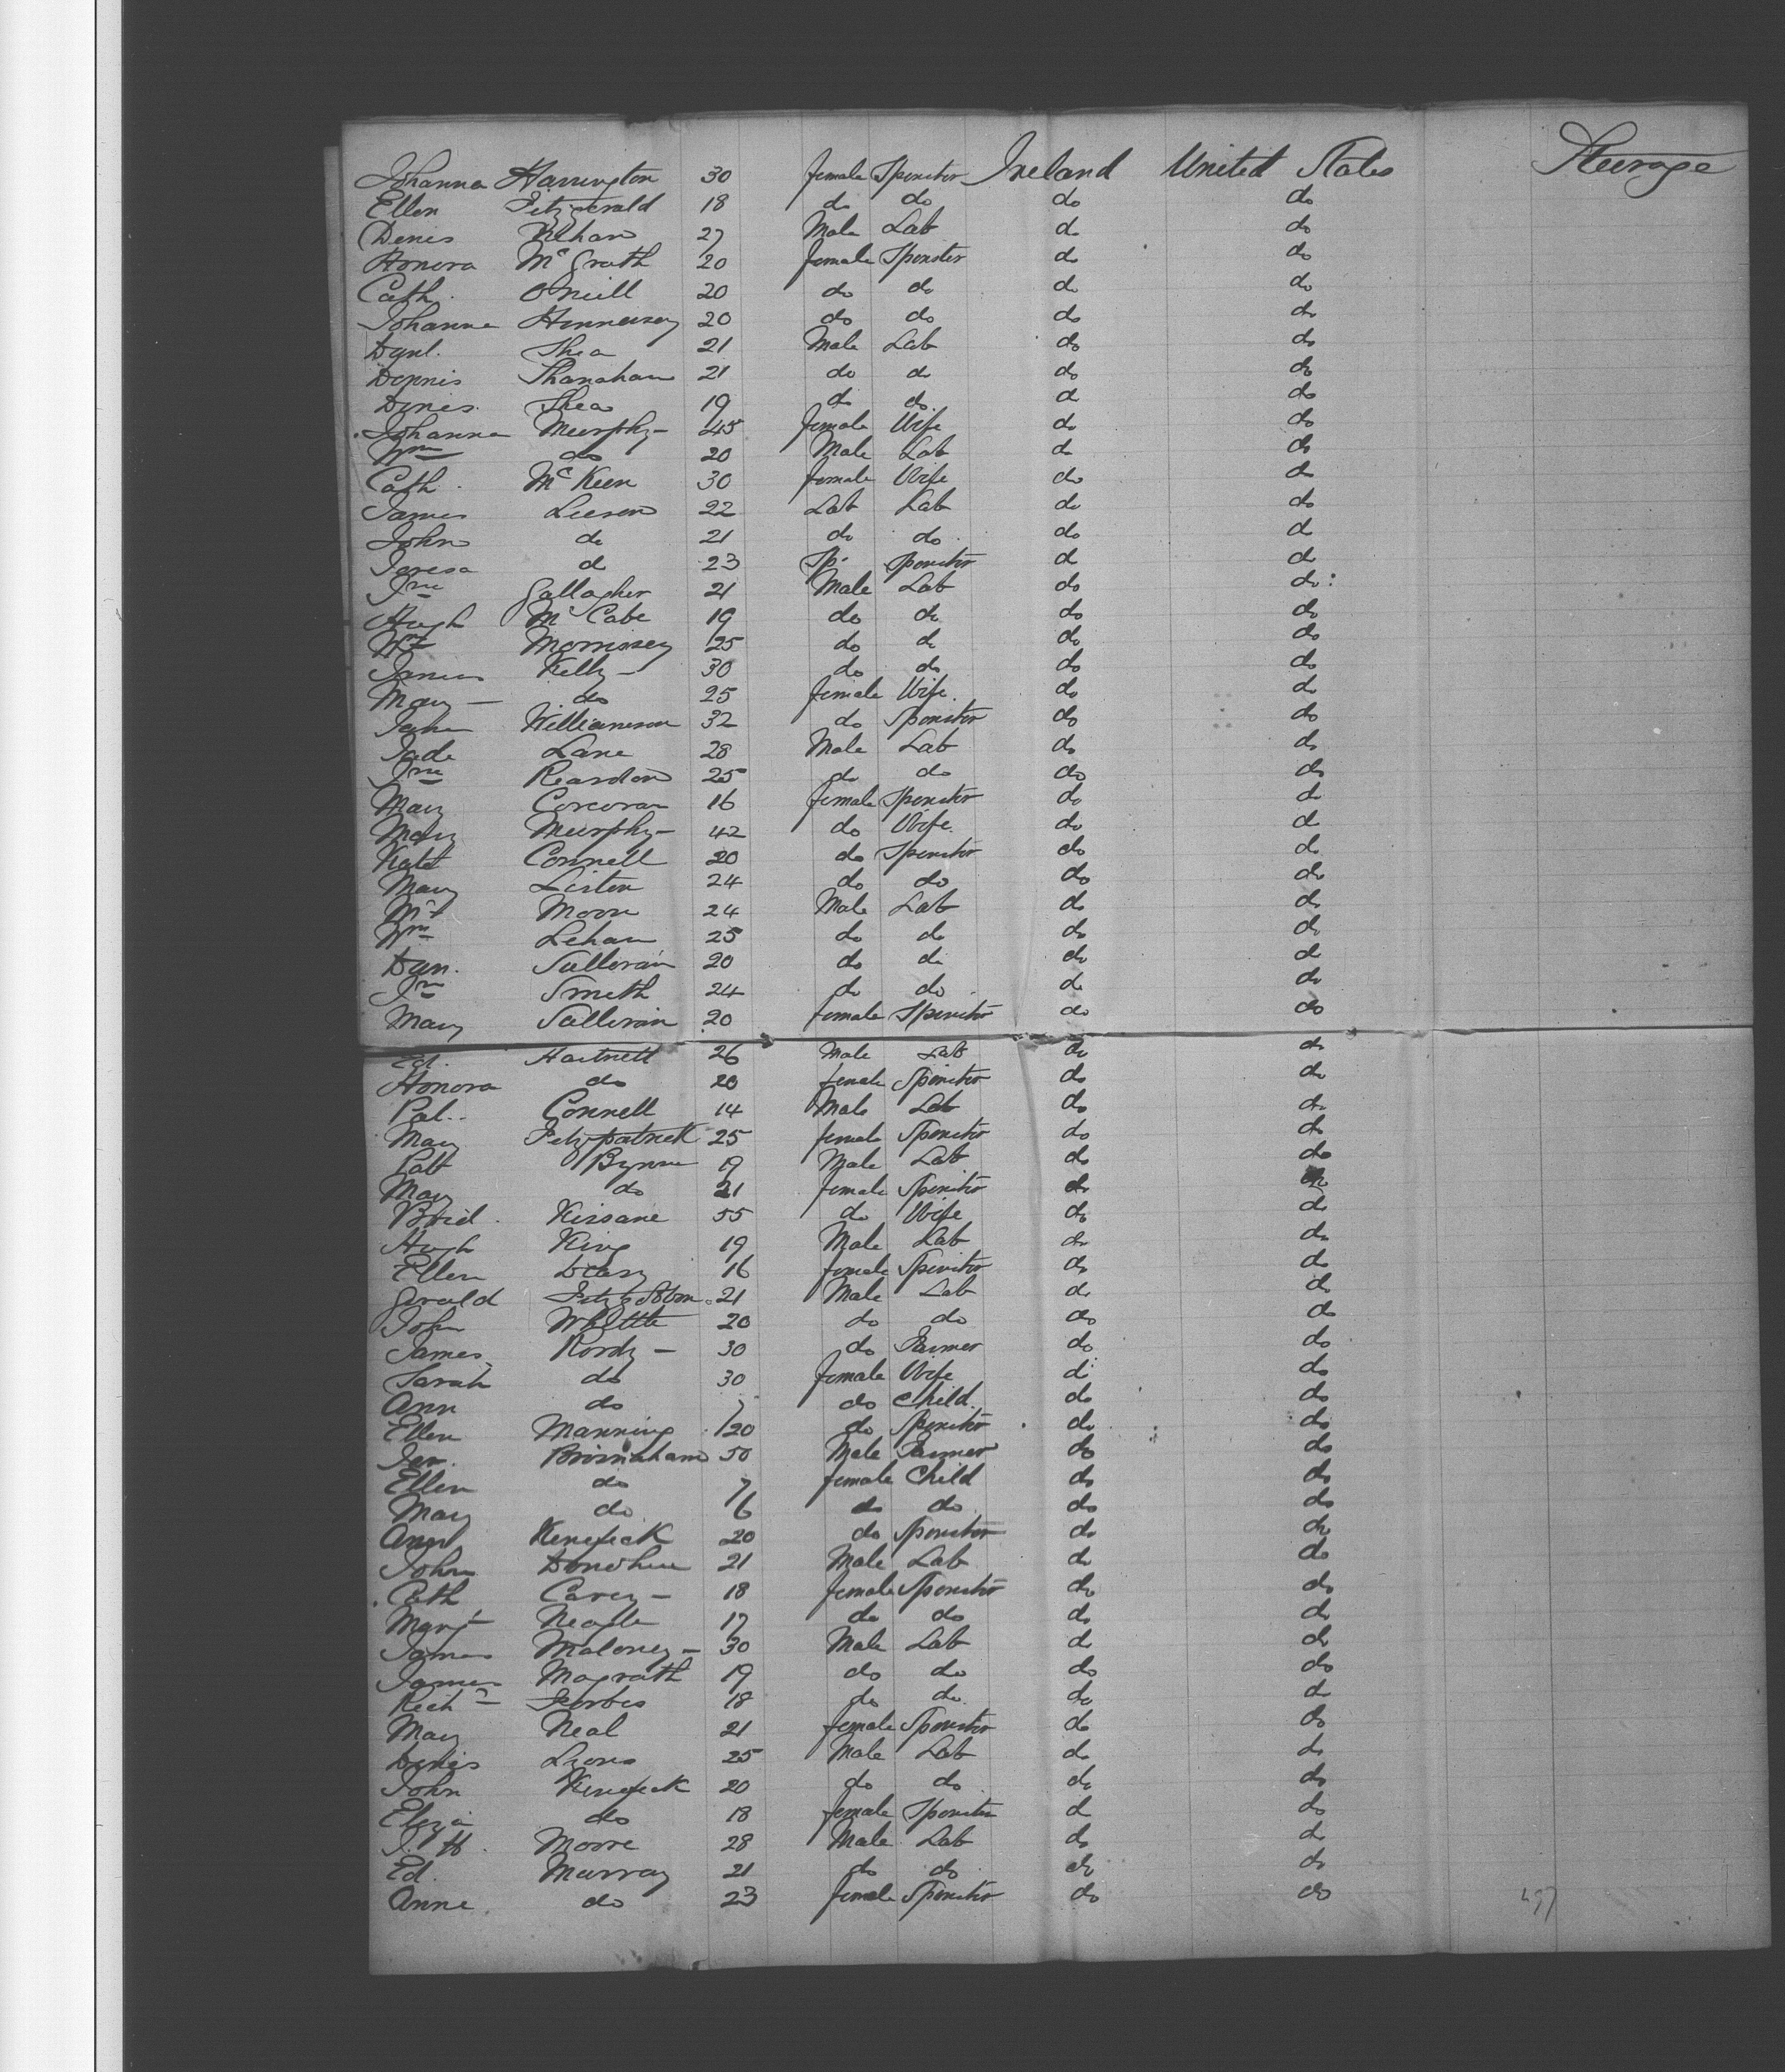 Johanna Harrington 30 female Spinster Ireland United States Steerage
Ellen Fitzgerald 18 do do do do
Denis 27 Male Lab do do
Honora McGrath 20 female Spinster do do
Cath. O'Neill 20 do do do do
Johanna Hennessey 20 do do do do
Danl. Shea 21 Male Lab do do
Dennis Shanahan 21 do do do do
Denis Shea 19 do do. do do
Johanna Murphy - 45 female Wife do do
Wm do 20 Male Lab do do
Cath. McKeen 30 female Wife do do
James Leeson 22 Lab Lab do do
John do 21 do do do do
Teresa do 23 Sp. Spinster do do
Jno Gallagher 21 Male Lab do do
Hugh McCabe 19 do do do do
Wm Morrissey 25 do do do do
James Kelly - 30 do do do do
Mary - do 25 female Wife. do do
Williamson 32 do Spinster do do
Lane 28 Male Lab do do
Jno Reardon 25 do do do do
Mary Corcoran 16 female Spinster do do
Mary Murphy - 42 do Wife. do do
Kate Connell 20 do Spinster do do
Mary Liston 24 do do do do
Moore 24 Male Lab do do
Wm Lehan 25 do do do do
Dan. Sullivan 20 do do do do
Jno Smith 24 do do do do
Mary Sullivan 20 female Spinster do do
Ed. Hartnett 26 Male Lab do do
Honora do 20 female Spinster do do
Pat. Connell 14 Male Lab do do
Mary Fitzpatrick 25 female Spinster do do
Patt Byrne 19 Male Lab do do
Mary do 21 female Spinster do do
Brid. Kissane 55 do Wife do do
Hugh King 19 Male Lab do do
Ellen 16 female Spinster do do
Gerald Fitzgibbon 21 Male Lab do do
John 20 do do do do
James - 30 do Farmer do do
Sarah do 30 female Wife do do
Ann do do Child. do do
Ellen Manning 20 do Spinster do do
50 Male Farmer do do
Ellen do 7 female Child do do
Mary do 6 do do do do
Ann Kenefick 20 do Spinster do do
John Donohue 21 Male Lab do do
Cath Carey - 18 female Spinster do do
Mary Neagle 17 do do do do
James Maloney - 30 Male Lab do do
James Magrath 19 do do do do
Richd Forbes 18 do do do do
Mary Neal 21 female Spinster do do
Denis Lyons 25 Male Lab do do
John Kenefick 20 do do do do
Eliza do 18 female Spinster do do
J. H. Moore 28 Male Lab do do
Ed. Murray 21 do do do do
Anne do 23 female Spinster do do